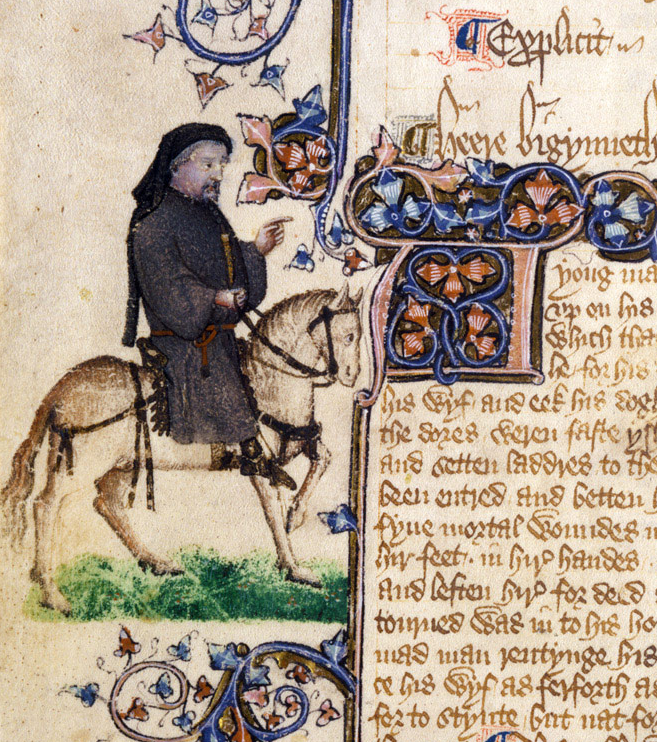 Explicit
Heere bigynneth
yong ma
vp on his
which tha
he for his
his wyf and eek his dogh
the dores weren faste ysh
and setten laddres to the
been entred and betten h
fyue mortal woundes in
hir feet in hir handes
and leften hir for deed
tourned was in to his ho
mad man rentynge his
te his wyf as ferforth as
fer to stynte but nat for